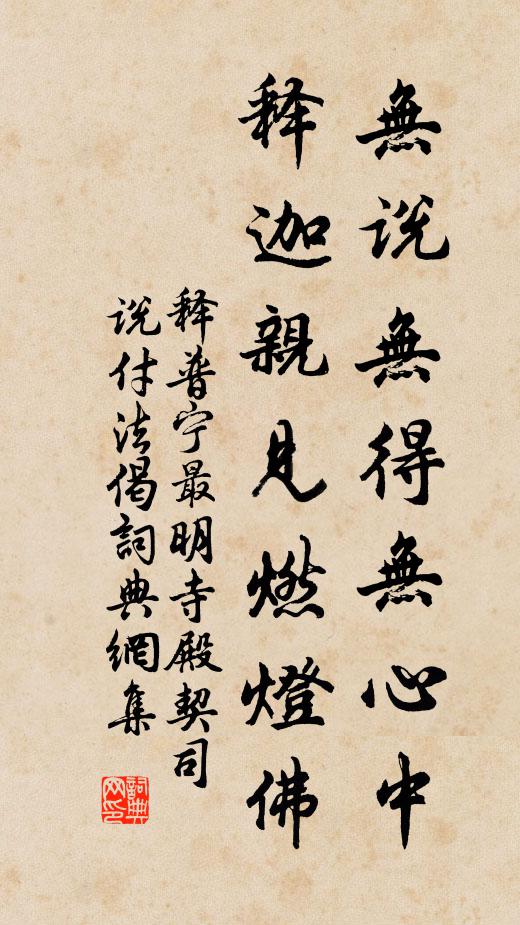 無说無得無心中
释迦親見燃燈佛
释普宁最明寺殿契司
说付法偈詞典網集
詞典网印